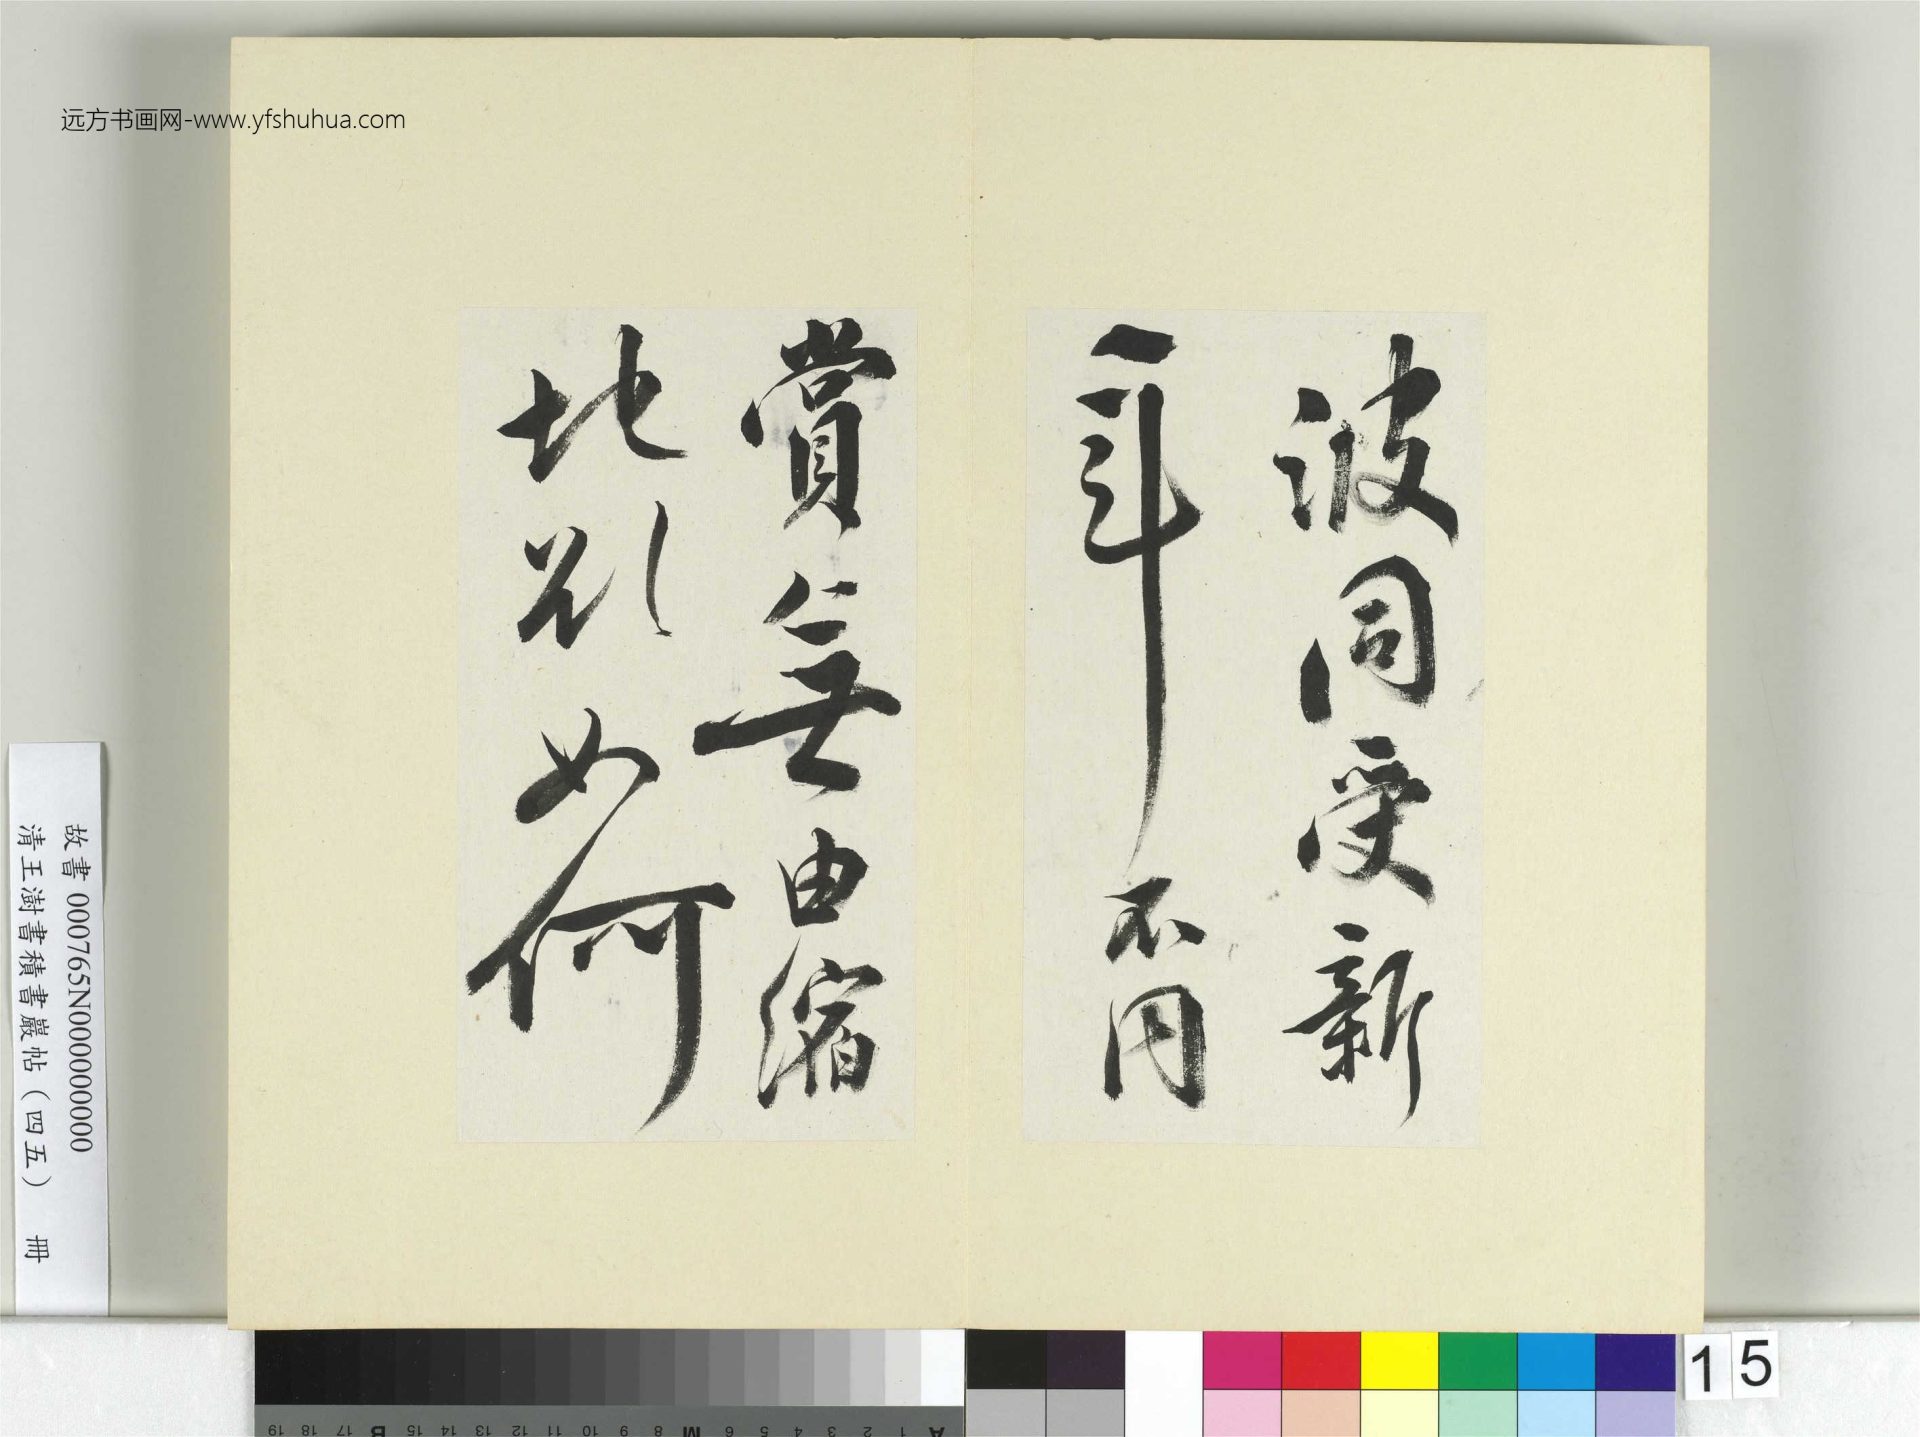 远方书画网-www.yfshuhua.com
波同受新
年不同
賞無由縮
地歎如何
故書 000765N000000000
清王澍書積書巖帖（四五） 冊
15
A 1 2 3 4 5 6 M 8 9 10 11 12 13 14 15 B 17 18 19